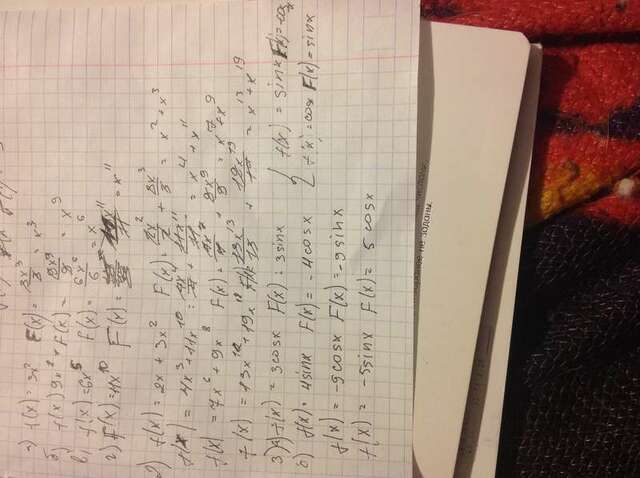 а) f(x) = 3x² F(x) = 3x³/3 = x³
б) f(x) 9x⁸ F(x) = 9x⁹/9 = x⁹
в) f(x) = 6x⁵ F(x) = 6x⁶/6 = x⁶
г) F(x) = 11x¹⁰ F(x) = 11x¹¹/11 = x¹¹
2) f(x) = 2x + 3x² F(x) = 2x²/2 + 3x³/3 = x² + x³
f(x) = 4x³ + 11x¹⁰ = 4x⁴/4 + 11x¹¹/11 = x⁴ + x¹¹
f(x) = 7x⁶ + 9x⁸ F(x) = 7x⁷/7 + 9x⁹/9 = x⁷ + x⁹
f(x) = 13x¹² + 19x¹⁸ F(x) 13x¹³/13 + 19x¹⁹/19 = x¹³ + x¹⁹
3) а) f(x) = 3cosx F(x) = 3sinx { f(x) = sinx F(x) = -cosx
б) f(x) = 4sinx F(x) = -4cosx f(x) = cosx F(x) = sinx
f(x) = -9cosx F(x) = -9sinx
f(x) = -5sinx F(x) = 5cosx
не заданы.